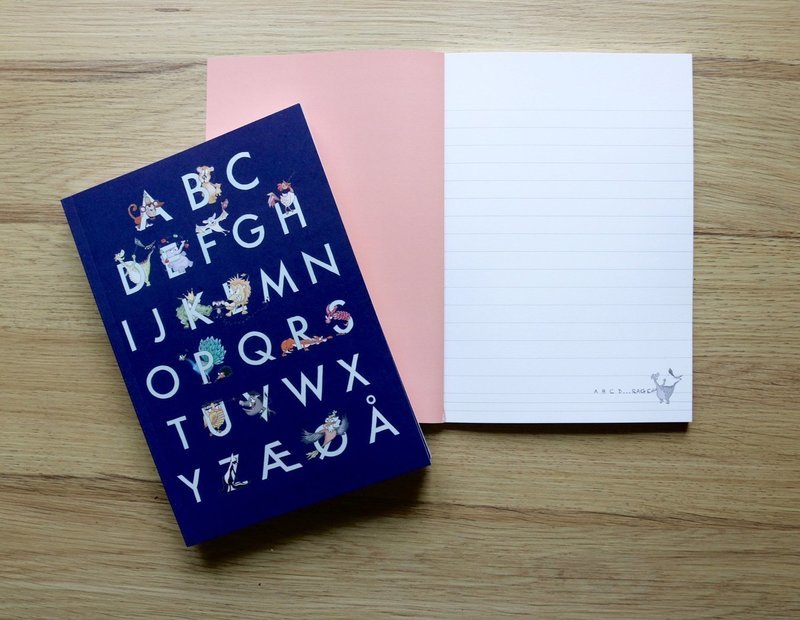 A B C
D E F G H
I J K L M N
O P Q R S
T U V W X
Y Z Æ Ø Å
A B C D...